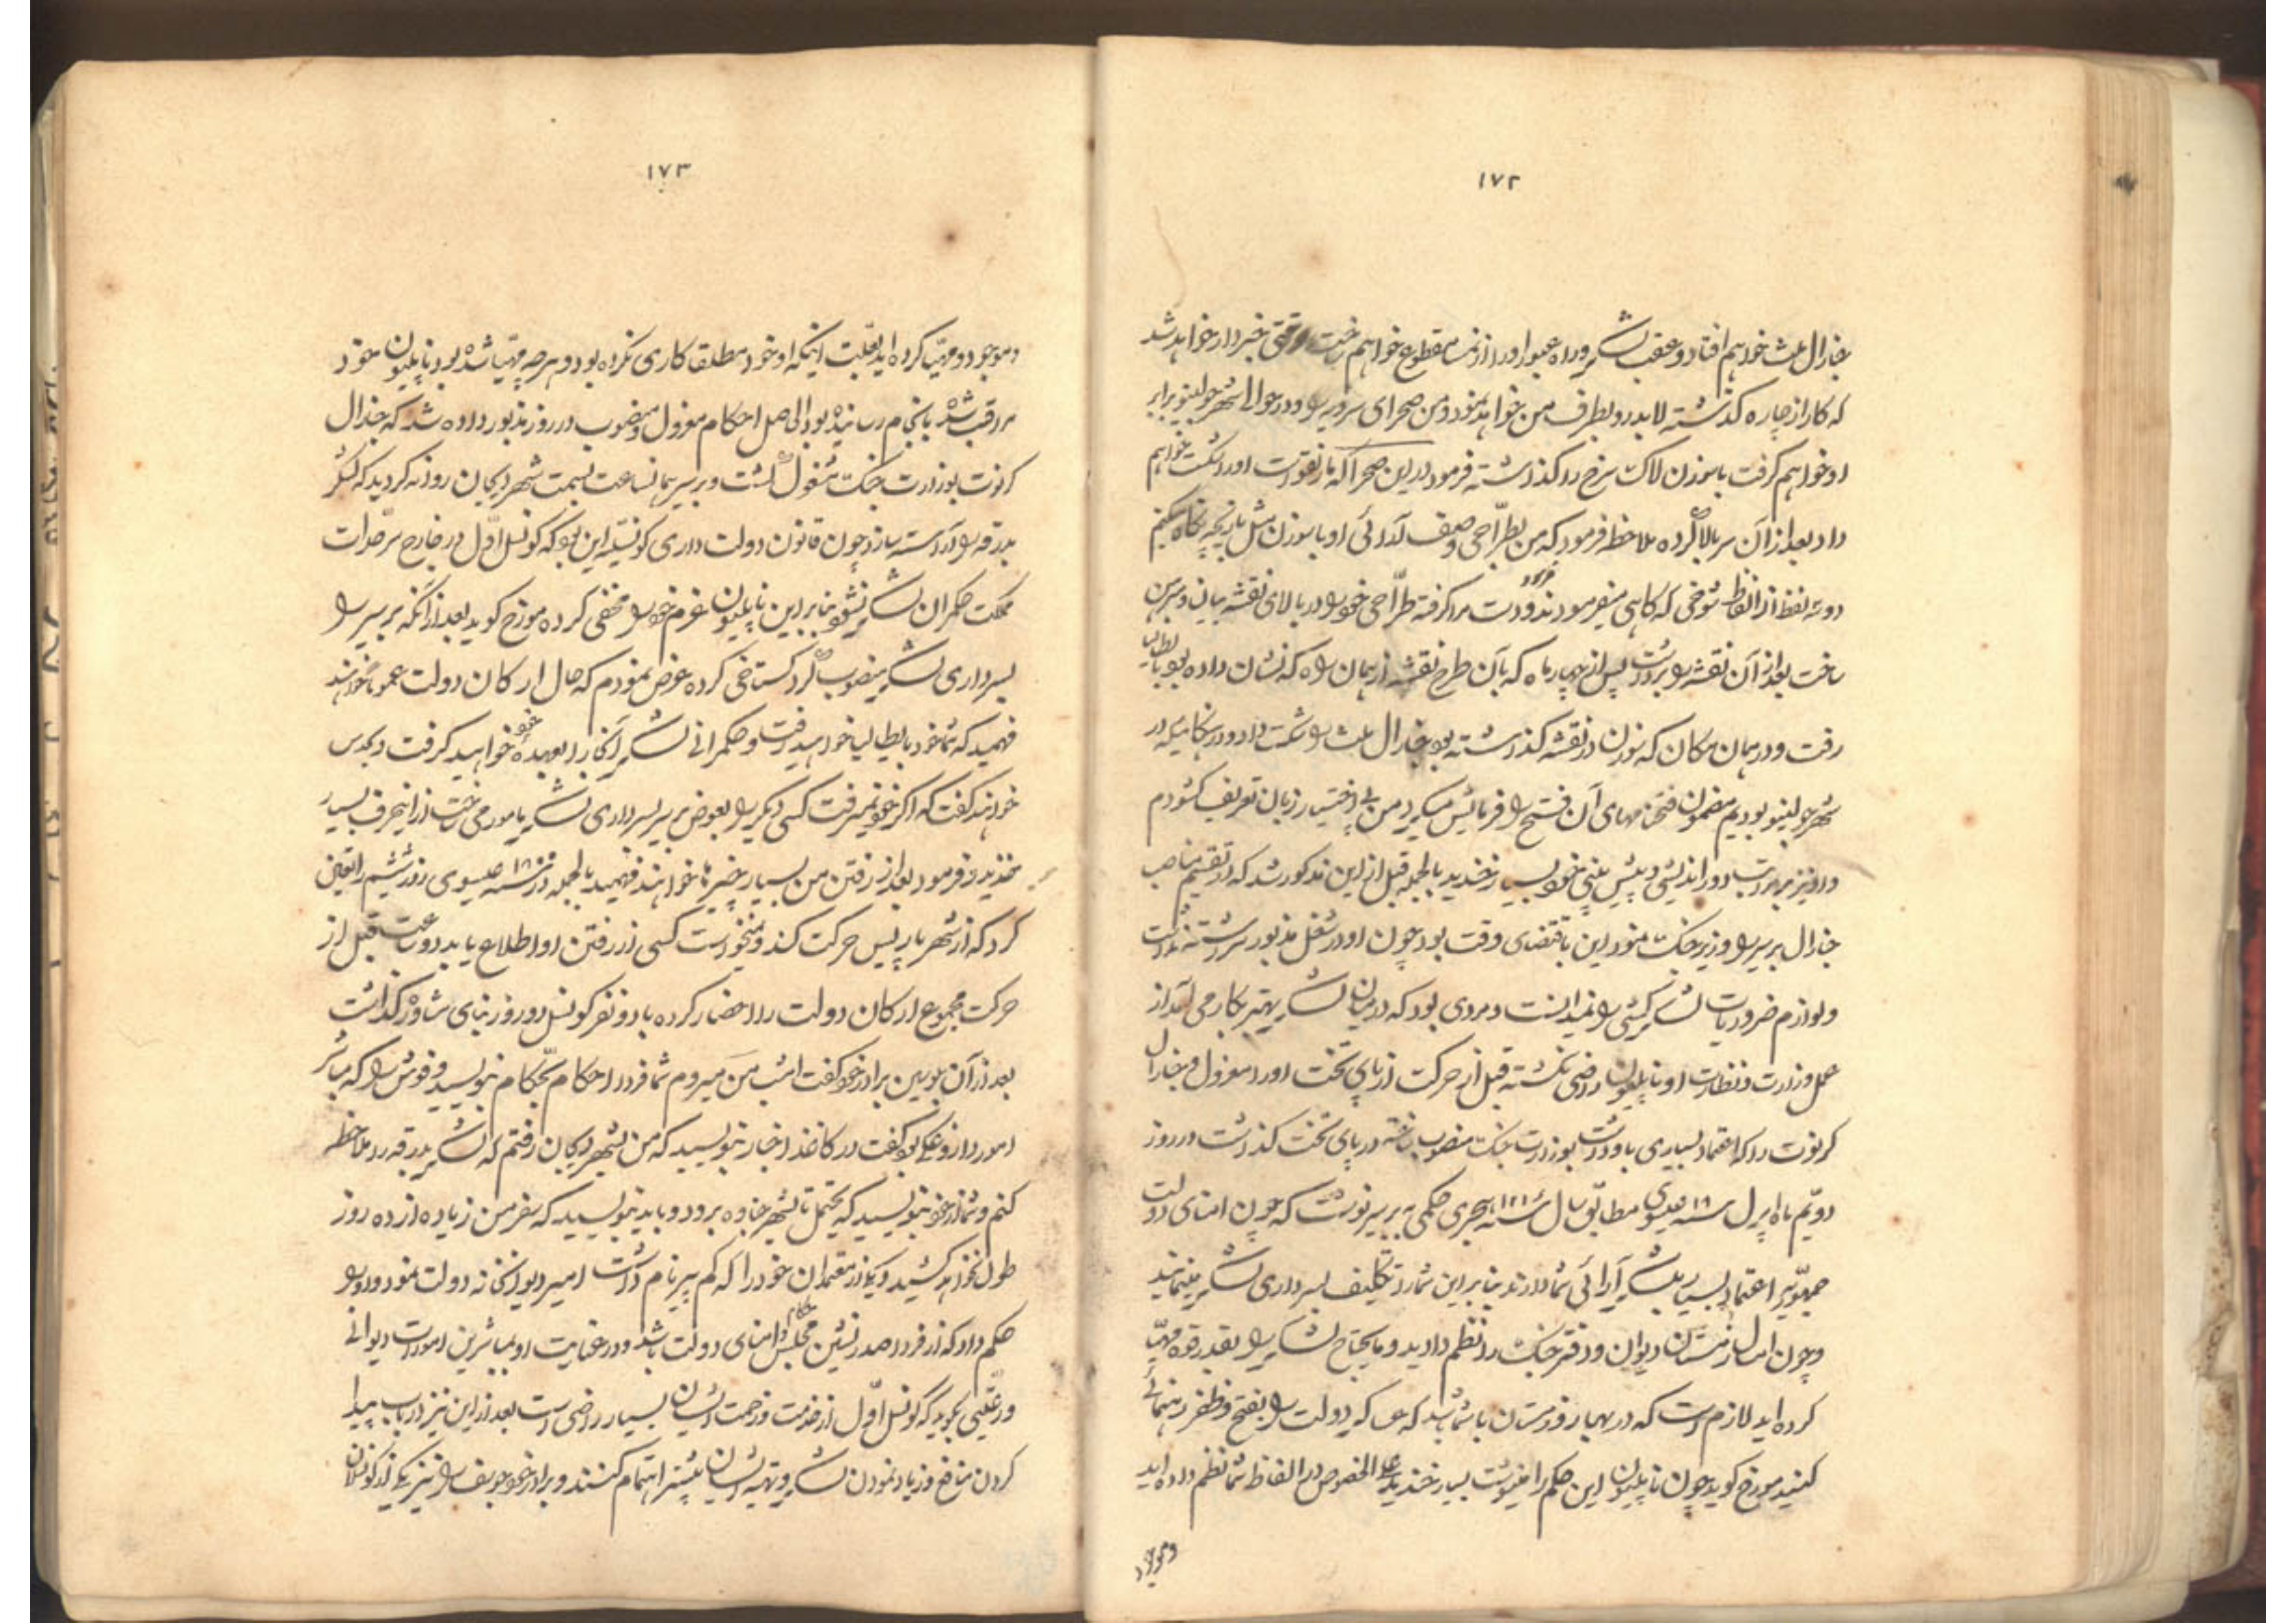 ١٧٢
جنارال ملث خواهم افتاد و عقب لشکر و راه عبور او را از نمسا مقطوع خواهم ساخت وقتی خبردار خواهد شد
که کار از چاره گذشته لابد رو بطرف من خواهد نمود و من صحرای سرویه را و در حوالی شهر جولینو برابر
او خواهم گرفت با سوزن لاک سرخ را گذاشته فرمود در این صحرا که مار نقوست او را شکست خواهم
داد بعد از آن سر بالا کرده ملاحظه فرمود که من بطراحی و صف آرائی او با سوزن مثل بازیچه نگاه میکنم
دو سه لفظ از الفاظ شوخی که گاهی میفرمودند فرمود و دست مرا گرفته طراحی خود را در بالای نقشه بیان و مبرهن
ساخت بعد از آن نقشه را برداشت پس از چهار ماه که بآن طرح نقشه از همان راه که نشان داده بود بایطالیا
رفت و در همان مکان که سوزن در نقشه گذاشته بود جنارال ملث را شکست داد و در هنگامیکه در
شهر جولینو بودیم مضمون فتحنامهای آن فتح را فرمایش میکرد من بی اختیار زبان تعریف گشودم
و او نیز بر مراتب دور اندیشی و پیش بینی خود بسیار خندید بالجمله قبل از این مذکور شد که در تقسیم مناصب
جنارال بریر را وزیر جنک نمود این باقتضای وقت بود چون او در شغل مذبور سررشته نداشت
و لوازم ضروریات لشکر کشی را نمیدانست و مردی بود که در میان لشکر بهتر بکار می آمد از
عمل وزارت و نظارت او ناپلیون راضی نگشته قبل از حرکت از پای تخت او را معزول و جنارال
کرنوت را که اعتماد بسیاری باو داشت بوزارت جنک منصوب ساخته در پای تخت گذاشت در روز
دویم ماه اپریل سنه ١٨ عیسوی مطابق سال سنه ١٢١ هجری حکمی به بریر نوشت که چون امنای دولت
جمهوریه اعتماد بسیار بلشکر آرائی شما دارند بنابر این شما را تکلیف بسرداری لشکر مینمایند
و چون امسال زمستان دیوان و دفتر جنک را نظم دادید و مایحتاج لشکر را بقدر قوه مهیا
کرده اید لازم است که در بهار و زمستان با شما باشد که هر که دولت را بفتح و ظفر رهنمائی
کنید مورخ گوید چون ناپلیون این حکم را مینوشت بسیار خندید علی الخصوص در الفاظ شما نظم داده اید
و موجود
١٧٣
و موجود و مهیا کرده اید بعلت اینکه او خود مطلقا کاری نکرده بود و هر چه مهیا شده بود ناپلیون خود
مراقب شده بانجام رسانیده بود الی اصل احکام معزول و منصوب در روز مذبور داده شد که جنرال
کرنوت بوزارت جنک مشغول گشت و بریر همان ساعت بسمت شهر دیجان روانه گردید که لشکر
بدرقه را آراسته سازد چون قانون دولت داری کونسلیه این بود که کونسل اول در خارج سرحدات
مملکت حکمران لشکر نشود بنابر این ناپلیون عزم خود را مخفی کرده مورخ گوید بعد از آنکه بریر را
بسرداری لشکر منصوب کرد گستاخی کرده عرض نمودم که حال ارکان دولت عموما خواهند
فهمید که شما خود بایطالیا خواهید رفت و حکمرانی لشکر آنجا را بعهده خود خواهید گرفت و بحدس
خواهند گفت که اگر خود نمیرفت کسی دیگر را بعوض بریر بسرداری لشکر مامور می ساخت از این حرف بسیار
خندید و فرمود بعد از رفتن من بسیار چیزها خواهند فهمید بالجمله در سنه ١٨٠٠ عیسوی روز ششم را تعیین
کرد که از شهر پاریس حرکت کند و نمیخواست کسی از رفتن او اطلاع یابد دو ساعت قبل از
حرکت مجموع ارکان دولت را احضار کرده با دو نفر کونسل دو روز بنای مشاوره گذاشت
بعد از آن بلوسین برادر خود گفت امشب من میروم شما فردا احکام بحکام بنویسید و فوش را که مباشر
امور داروغکی بود گفت در کاغذ اخبار بنویسید که من بشهر دیجان رفتم که لشکر بدرقه را ملاحظه
کنم و شما از خود بنویسید که یحتمل تا شهر جناوه برود و باید بنویسید که سفر من زیاده از ده روز
طول نخواهد کشید و یکی از معتمدان خود را که کم پیر نام داشت امیر دیوانخانه دولت نمود و او را
حکم داد که از فردا صدر نشین مجلس حکام و امنای دولت باشد و در غیابت او بمباشرین امورات دیوانی
و رعیتی بگوید که کونسل اول از خدمت و زحمت ایشان بسیار راضی است بعد از این نیز در باب پیدا
کردن منافع و زیاد نمودن لشکر و تهیه ایشان بیشتر اهتمام کنند و برادر خود یوسف را نیز یکی از کونسلان